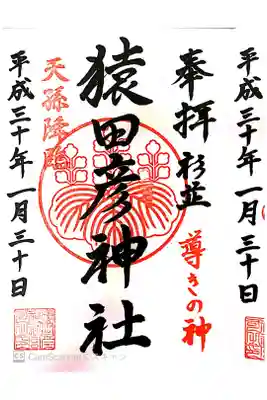 平成三十年一月三十日
奉拝
杉並
導きの神
猿田彦神社
天孫降臨
平成三十年一月三十日
CS CamScannerでスキャン